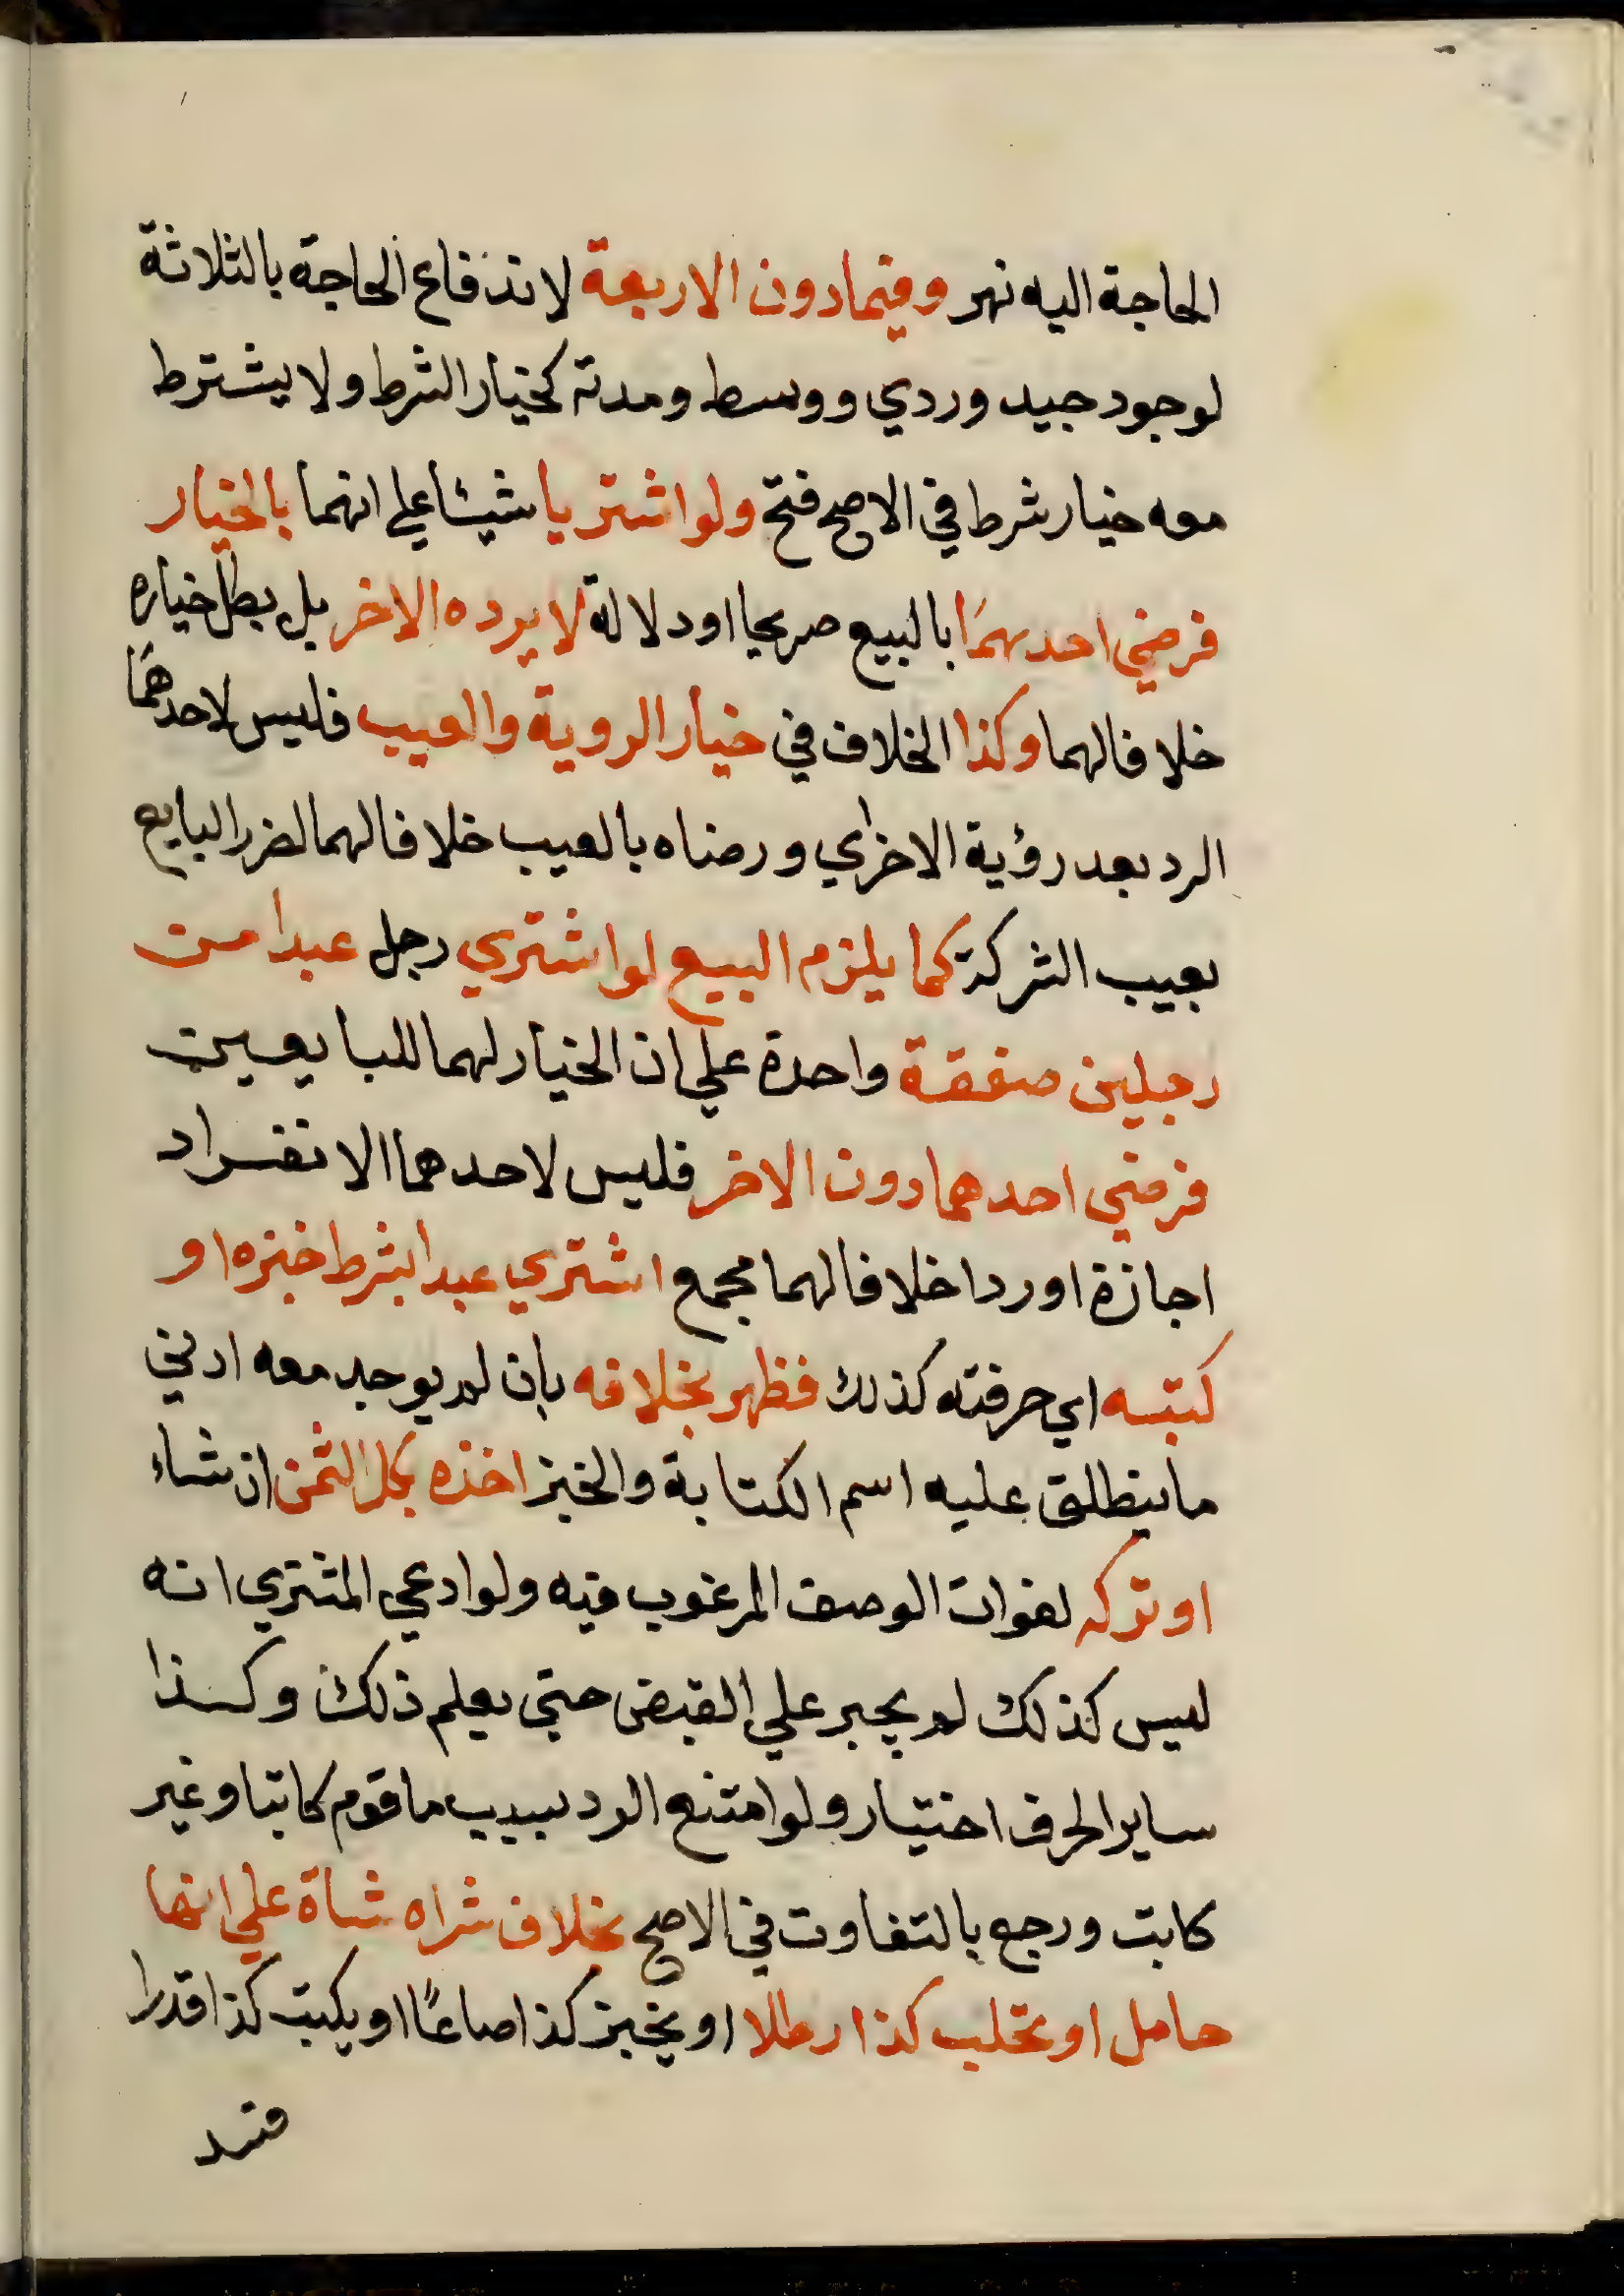 الحاجة اليه نهر وفيمادون الاربعة لاندفاع الحاجة بالثلاثة
لوجود جيد وردي ووسط ومدته كخيار الشرط ولا يشترط
معه خيار شرط في الاصح فتح ولو اشتريا شيئا علي انهما بالخيار
فرضي احدهما بالبيع صريحا او دلالة لا يرده الاخر بل بطل خياره
خلافا لهما وكذا الخلاف في خيار الروية والعيب فليس لاحدهما
الرد بعد رؤية الاخراي ورضاه بالعيب خلافا لهما لضرر البايع
بعيب الشركة كما يلزم البيع لو اشتري رجل عبدا من
رجلين صفقة واحدة علي ان الخيار لهما للبايعين
فرضي احدهما دون الاخر فليس لاحدهما الانفراد
اجازة او ردا خلافا لهما مجمع اشتري عبدا بشرط خبزه او
كتبه اي حرفته كذلك فظهر بخلافه بان لم يوجد معه ادني
ما ينطلق عليه اسم الكتابة والخبز اخذه بكل الثمن ان شاء
او تركه لفوات الوصف المرغوب فيه ولو ادعي المشتري انه
ليس كذلك لم يجبر علي القبض حتي يعلم ذلك وكذا
ساير الحرف اختيار ولو امتنع الرد بسبب ما قوم كاتبا وغير
كاتب ورجع بالتفاوت في الاصح بخلاف شراه شاة علي انها
حامل او تحلب كذا رطلا او يخبز كذا صاعًا او يكتب كذا قدرا
فسد